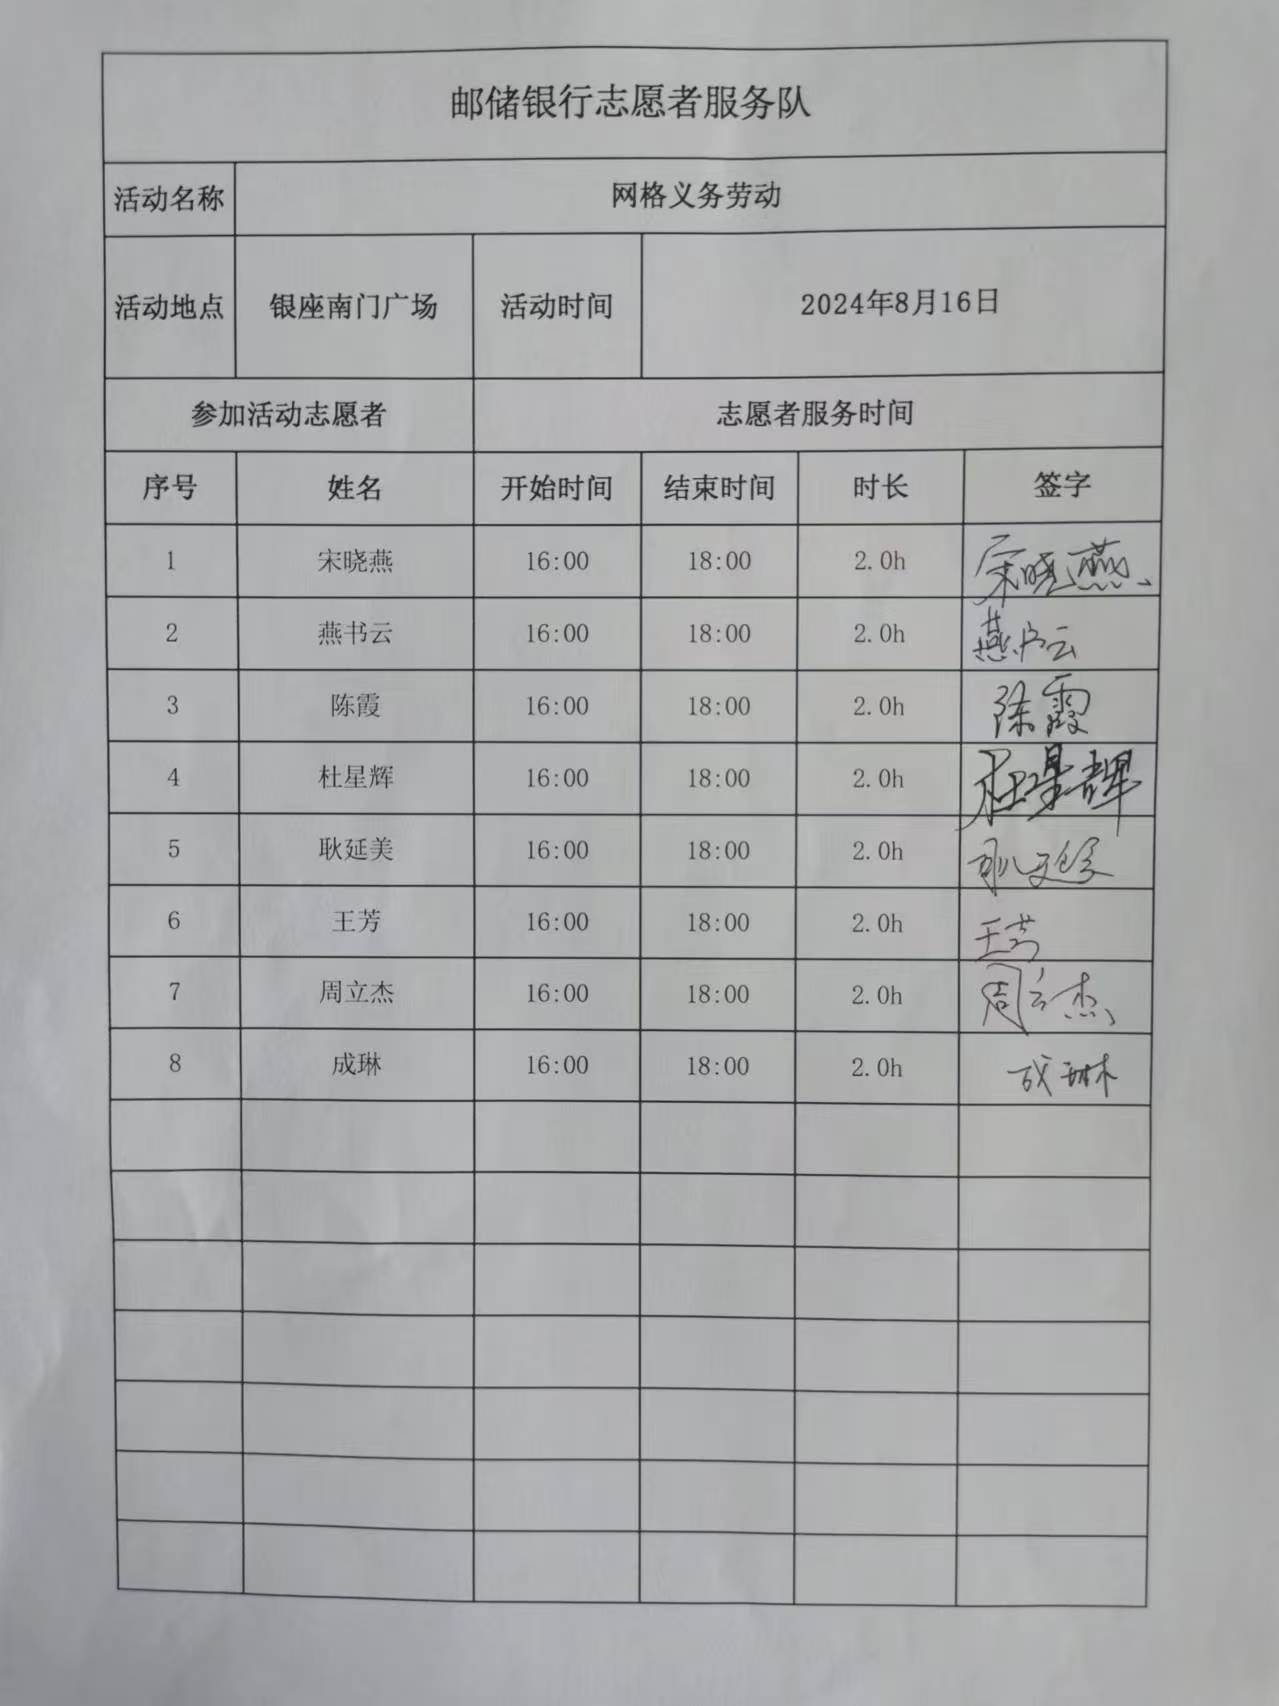 邮储银行志愿者服务队
活动名称 网格义务劳动
活动地点 银座南门广场 活动时间 2024年8月16日
参加活动志愿者 志愿者服务时间
序号 姓名 开始时间 结束时间 时长 签字
1 宋晓燕 16:00 18:00 2.0h 宋晓燕
2 燕书云 16:00 18:00 2.0h 燕书云
3 陈霞 16:00 18:00 2.0h 陈霞
4 杜星辉 16:00 18:00 2.0h 杜星辉
5 耿延美 16:00 18:00 2.0h
6 王芳 16:00 18:00 2.0h 王芳
7 周立杰 16:00 18:00 2.0h 周立杰
8 成琳 16:00 18:00 2.0h 成琳